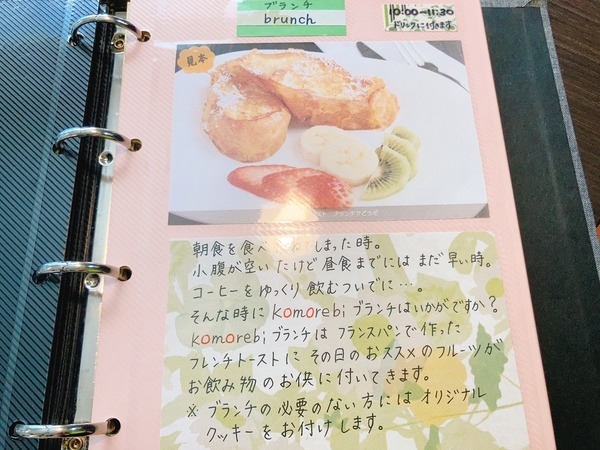 ブランチ
brunch
10:00~11:30
ドリンクに付きます
見本
朝食を食べ しまった時。
小腹が空いたけど昼食までにはまだ早い時。
コーヒーをゆっくり飲むついでに…。
そんな時にkomorebiブランチはいかがですか?
komorebiブランチはフランスパンで作った
フレンチトーストにその日のおススメのフルーツが
お飲み物のお供に付いてきます。
※ブランチの必要のない方にはオリジナル
クッキーをお付けします。